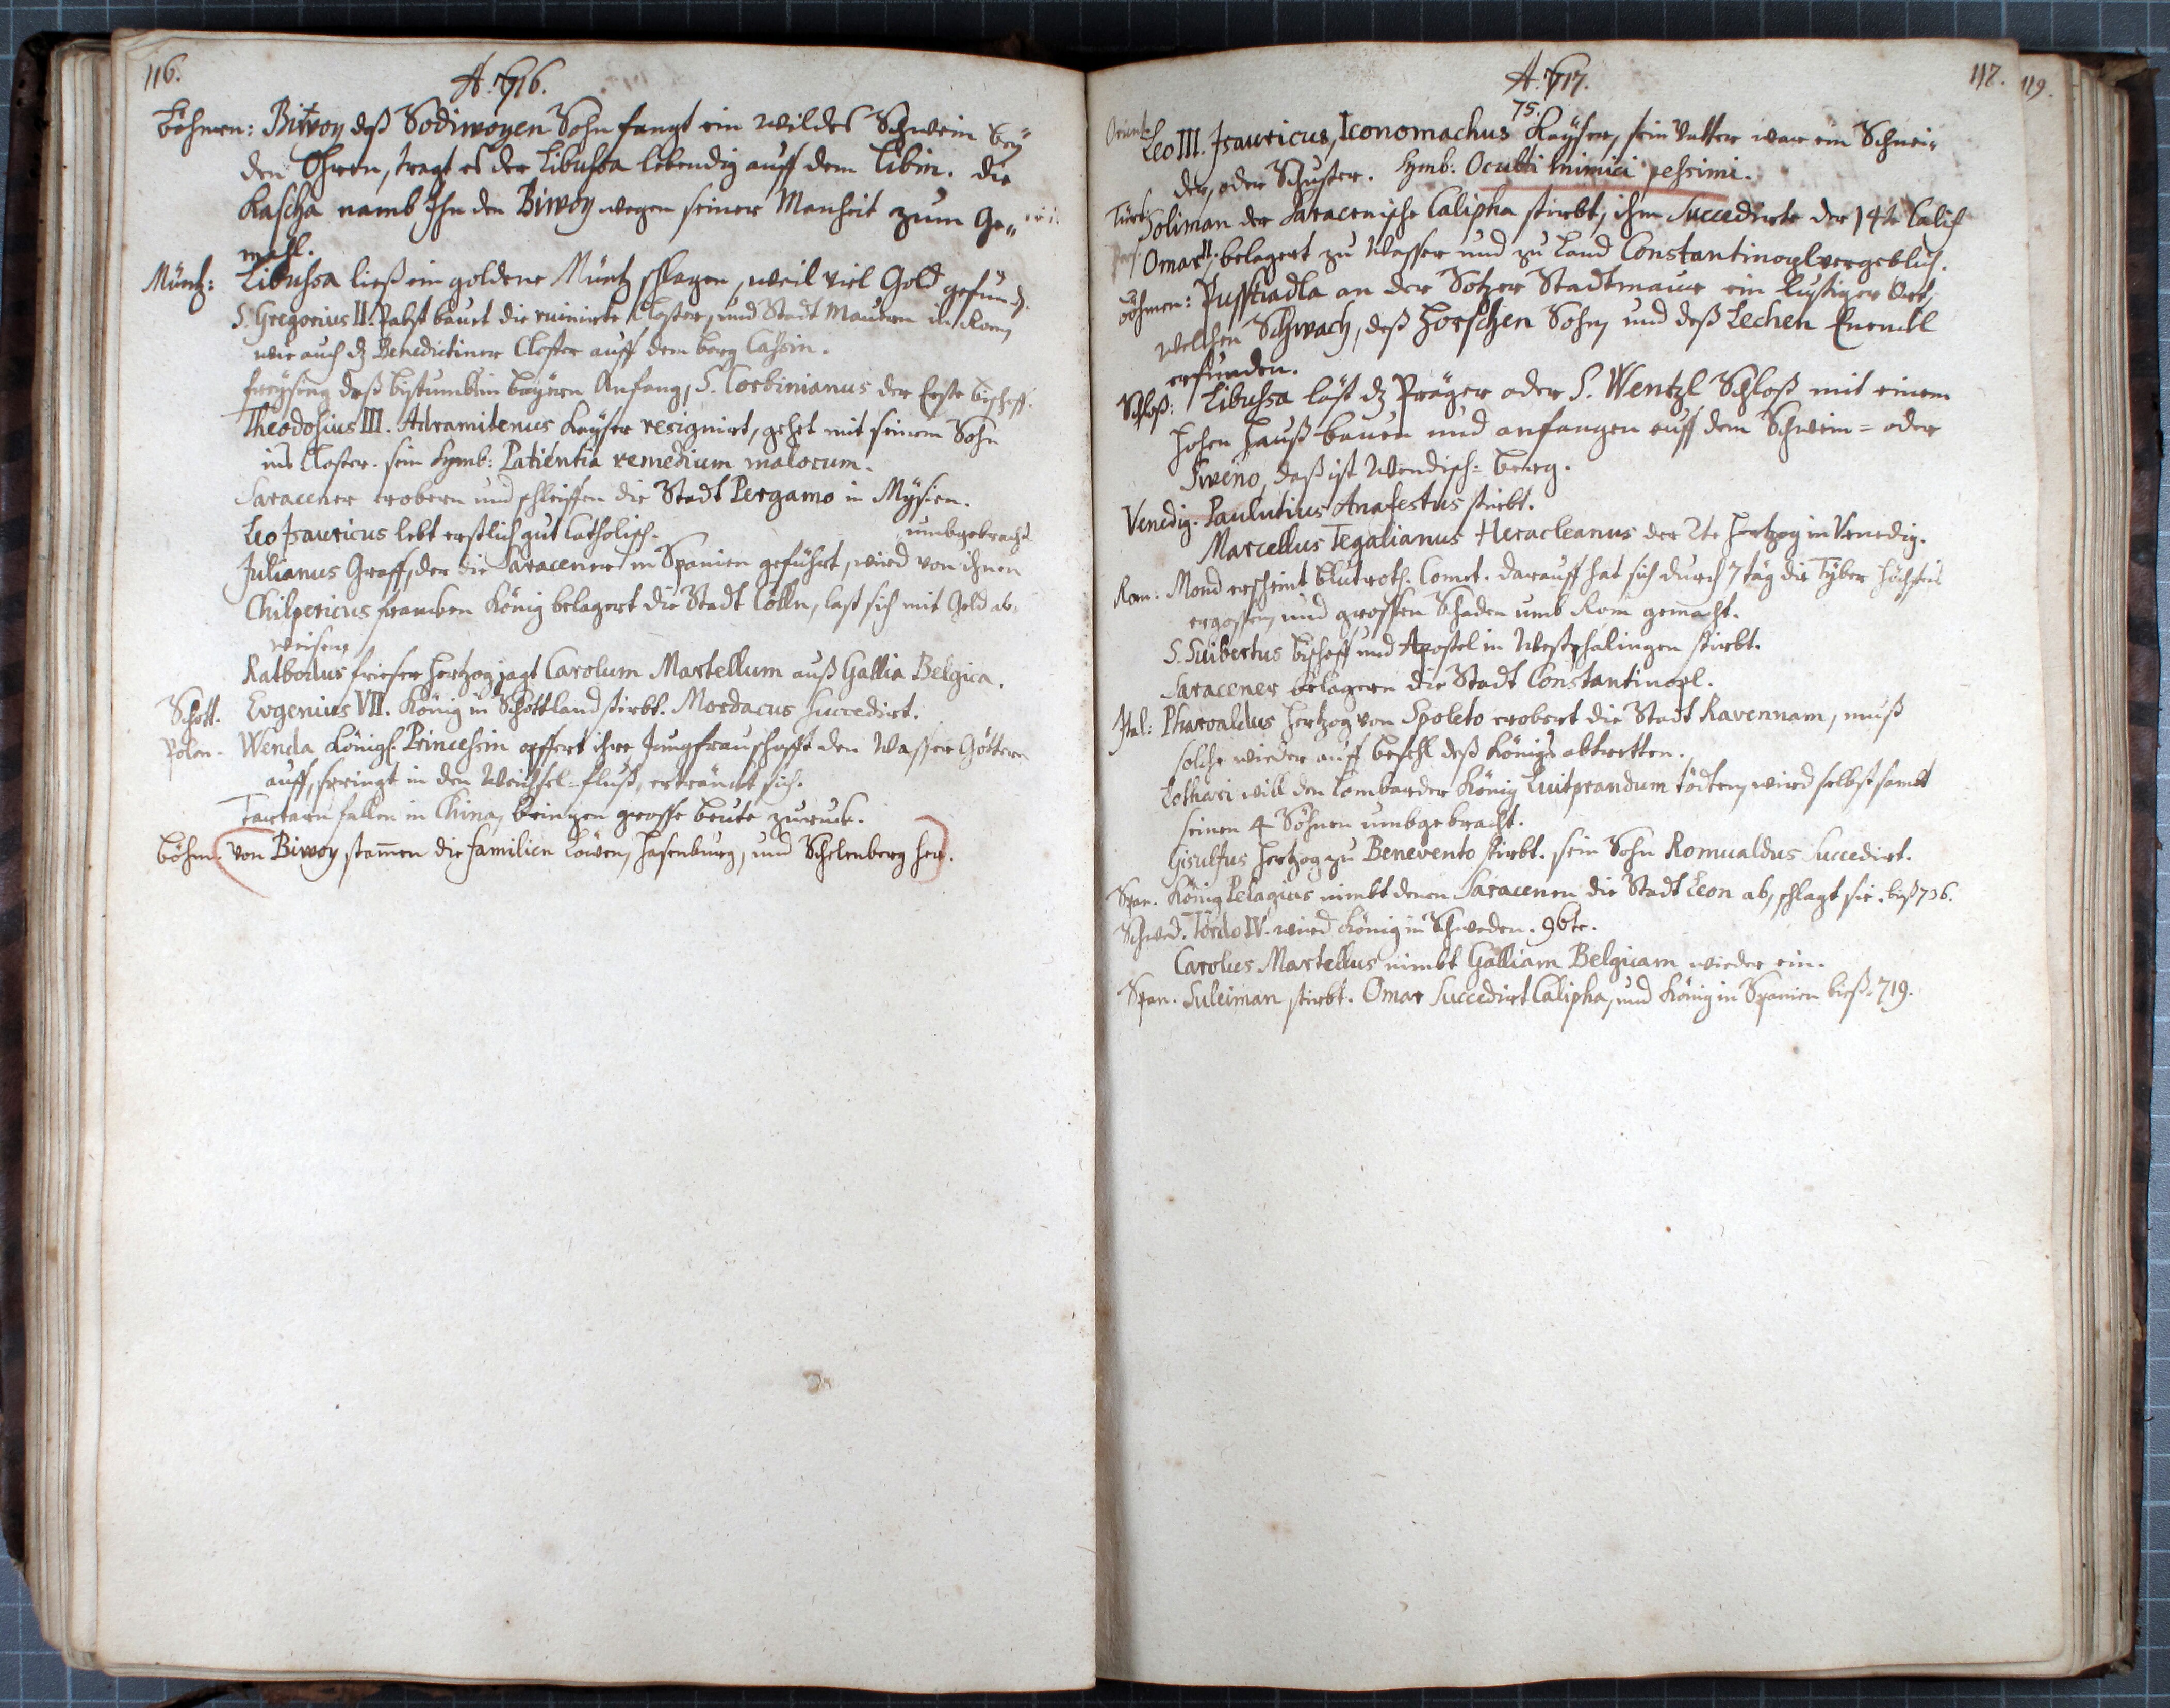 116.
A. 716.
Böhmen: Biwoy deß Sodiwoyen Sohn fangt ein wildes Schwein bey
den Ohren, tragt es der Libussa lebendig auff dem Libin. Die
Kascha namb Ihn den Biwoy wegen seiner Manheit zum Ge„
mahl.
Müntz: Libussa ließ ein goldene Müntz schlagen, weil viel Gold gefund.
S. Gregorius II. Pabst bauet die ruinirte Closter, und Stadt Mauern in Rom,
wie auch dz Benedictiner Closter auff dem berg Cassin.
Freysing deß bistumbs in bayern Anfang, S. Corbinianus der Erste bischoff.
Theodosius III. Adramitenus Kayser resignirt, gehet mit seinem Sohn
ins Closter. sein Symb: Patientia remedium malorum.
Saracener erobern und schleiffen die Stadt Pergamo in Mysien.
Leo Isauricus lebt erstlich gut Catholisch.
umbgebracht
Julianus Graff, der die Saracener in Spanien geführt, wird von ihnen
Chilpericus francken König belagert die Stadt Cölln, last sich mit Geld ab„
weisen.
Ratbodus frieser Hertzog jagt Carolum Martellum auß Gallia Belgica.
Schott. Evgenius VII. König in Schottland stirbt. Mordacus Succedirt.
Polen. Wenda Königl. Princessin opffert ihre Jungfrauschafft den Wasser Göttern
auff, springt in den Weichsel-fluß, ertränckt sich.
Tartarn fallen in China, bringen grosse beute zuruck.
Böhm. Von Biwoy stamen die familien Löwen, Hasenburg, und Schelenberg her.
117. 119.
A. 717.
75.
Orient. Leo III. Isauricus, Iconomachus Kayser, sein Vatter war ein Schnei„
der, oder Schuster. Symb: Occulti inimici pessimi.
Türck. Soliman der Saracenische Calipha stirbt, ihm Succedirte der 14te Calif
Omar II. belagert zu Wasser und zu Land Constantinopl vergeblich.
Böhmen: an der Stadtmaur ein lustiger Ort,
welchen Schwach, deß Horschen Sohn, und deß Lechen Enenckl
erfunden.
Schloß: Libussa läst dz Präger oder S. Wentzl Schloß mit einem
Hohen Hauß bauen und anfangen auff dem Schwein- oder
Sweno, daß ist Wendisch-berg.
Venedig. Paulutius Anafestus stirbt.
Marcellus Tegalianus Heracleanus der 2te Hertzog in Venedig.
Rom: Mond erscheint blutroth. Comet. darauff hat sich durch 7 täg die Tyber höchstens
ergossen, und grossen Schaden umb Rom gemacht.
S. Suibertus bischoff und Apostel in Westphalingen stirbt.
Saracener belagern die Stadt Constantinopl.
Ital: Pharoaldus Hertzog von Spoleto erobert die Stadt Ravennam, muß
solche wieder auff befehl deß Königs abtretten.
Lothari will den Lombarder König Luitprandum tödten, wird selbst sambt
seinen 4 Söhnen umbgebracht.
Gisulfus Hertzog zu Benevento stirbt. sein Sohn Romualdus Succedirt.
Span. König Pelagius nimbt denen Saracenen die Stadt Leon ab, schlagt sie. biß 736.
Schwed. Tordo IV. wird König in Schweden. 96te.
Carolus Martellus nimbt Galliam Belgicam wieder ein.
Span. Suleiman stirbt. Omar Succedirt Calipha, und König in Spanien bieß 719.